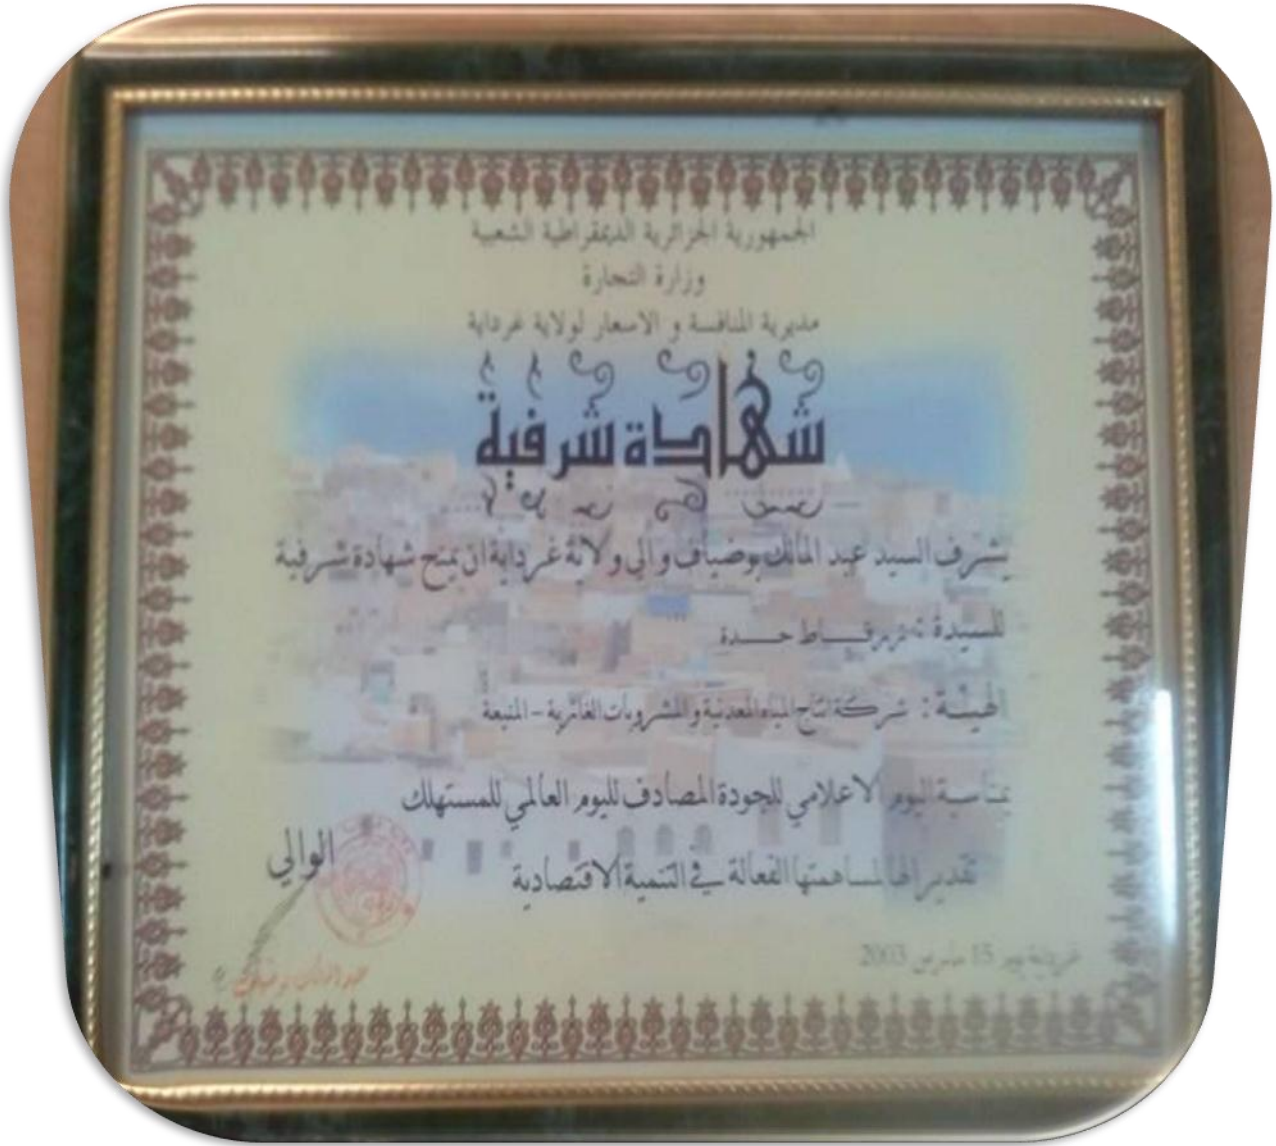 الجمهورية الجزائرية الديمقراطية الشعبية
وزارة التجارة
مديرية المنافسة و الاسعار لولاية غرداية
شهادة شرفية
يتشرف السيد عبد المالك بوضياف والي ولاية غرداية ان يمنح شهادة شرفية
للسيدة : حدة
الهيئة : شركة انتاج المياه المعدنية و المشروبات الغازية - المنيعة
بمناسبة اليوم الاعلامي للجودة المصادف لليوم العالمي للمستهلك
تقديرا لها لمساهمتها الفعالة في التنمية الاقتصادية
الوالي
غرداية يوم 15 مارس 2003
عبد المالك بوضياف